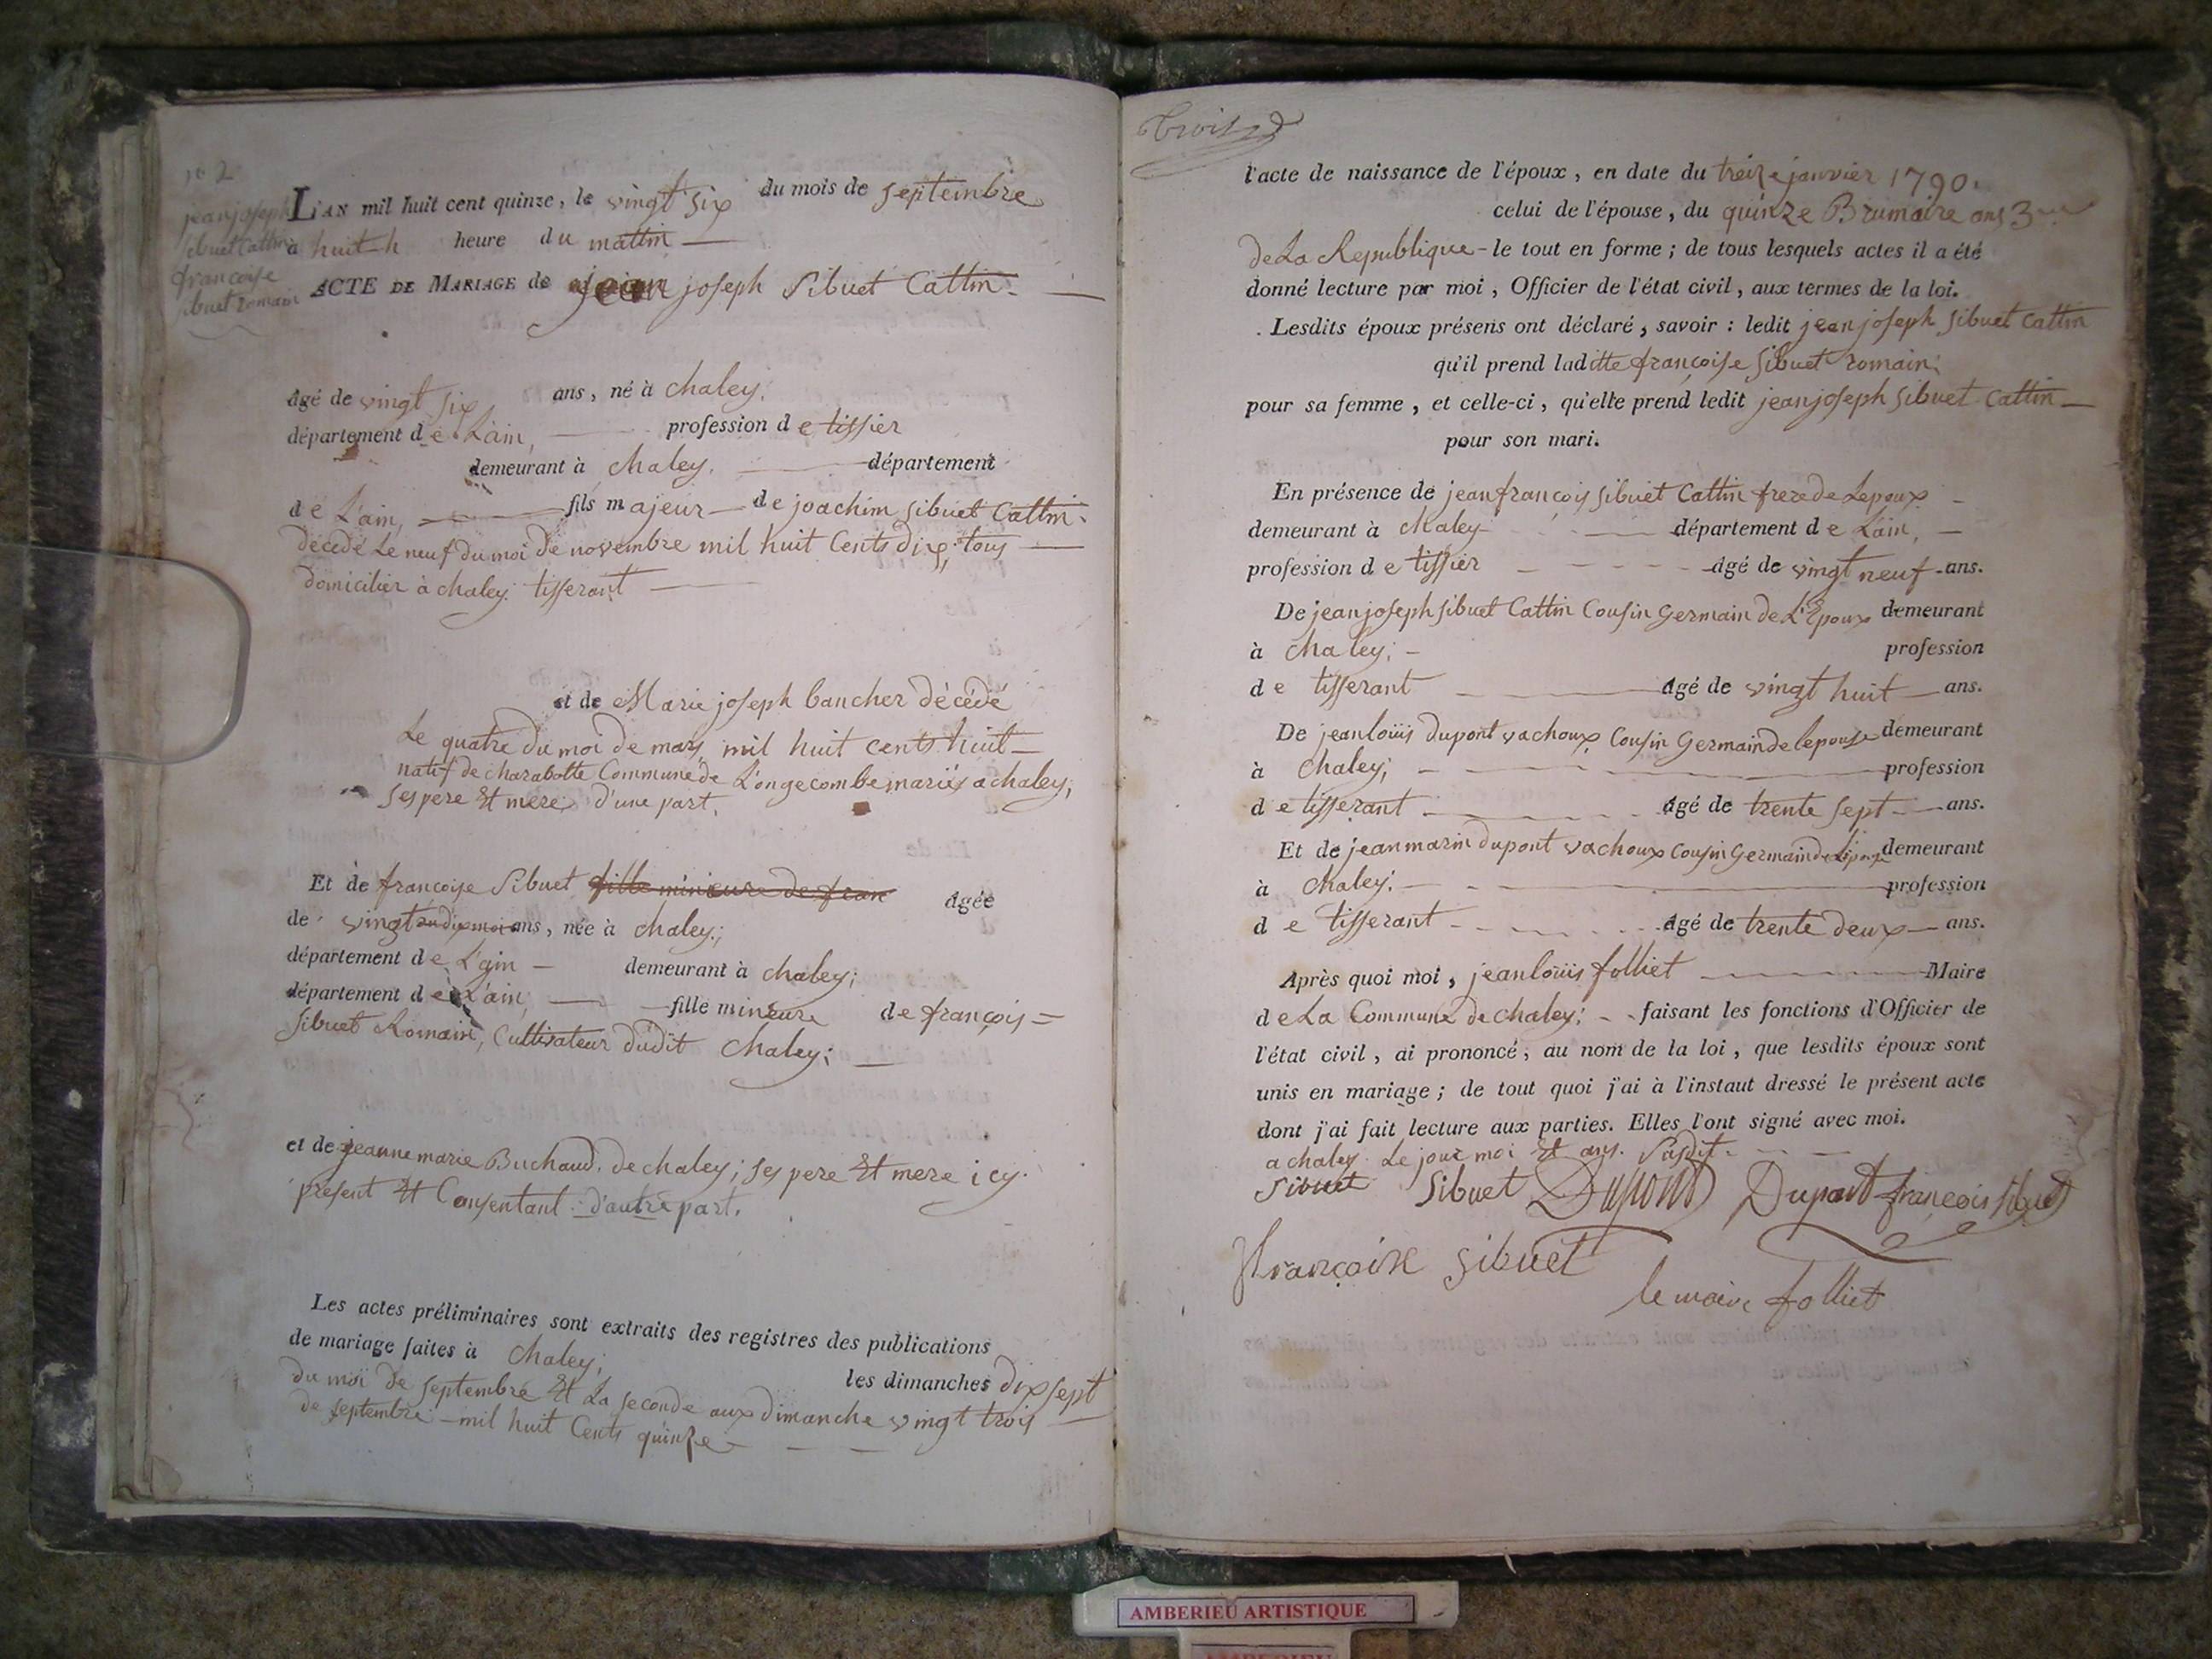 102
jean joseph
sibuet Cattin
françoise
sibuet romain
L'AN mil huit cent quinze, le vingt six du mois de septembre
à huit h heure du mattin
ACTE DE MARIAGE de jean joseph Sibuet Cattin.
âgé de vingt six ans, né à chaley.
département de L'ain, profession de tissier
demeurant à chaley. département
de L'ain, fils majeur de joachim sibuet Cattin.
décédé Le neuf du moi de novembre mil huit Cents dix, tous
domicilier à chaley. tisserant
et de Marie joseph bancher décédé
Le quatre du moi de mars, mil huit cents huit
natif de charabotte Commune de L'ongecombe mariés a chaley,
ses pere Et mere, d'une part.
Et de françoise Sibuet fille minieure de fran âgée
de vingt an dix moi ans, née à chaley;
département de L'ain demeurant à chaley;
département de L'ain, fille mineure de françois =
Sibuet Romain, Cultivateur dudit Chaley;
et de jeanne marie Buchaud. de chaley; ses pere Et mere icy.
présent Et Consentant d'autre part.
Les actes préliminaires sont extraits des registres des publications
de mariage faites à Chaley; les dimanches dix sept
du moi de septembre Et La seconde aux dimanche vingt trois
de septembre mil huit Cents quinze
trois
l'acte de naissance de l'époux, en date du treize janvier 1790.
celui de l'épouse, du quinze Brumaire ans 3me
de La Republique - le tout en forme; de tous lesquels actes il a été
donné lecture par moi, Officier de l'état civil, aux termes de la loi.
Lesdits époux présens ont déclaré, savoir : ledit jean joseph Sibuet Cattin
qu'il prend laditte françoise Sibuet romain;
pour sa femme, et celle-ci, qu'elle prend ledit jean joseph Sibuet Cattin
pour son mari.
En présence de jean françois Sibuet Cattin frere de Lepoux
demeurant à chaley département de L'ain,
profession de tissier âgé de vingt neuf ans.
De jean joseph Sibuet Cattin Cousin Germain de L'Epoux demeurant
à Chaley; profession
de tisserant âgé de vingt huit ans.
De jean loüis dupont vachoux Cousin Germain de lepouse demeurant
à Chaley; profession
de tisserant âgé de trente sept ans.
Et de jean marin dupont vachoux Cousin Germain de L'épouse demeurant
à Chaley. profession
de tisserant âgé de trente deux ans.
Après quoi moi, jean loüis folliet Maire
de La Commune de chaley; faisant les fonctions d'Officier de
l'état civil, ai prononcé, au nom de la loi, que lesdits époux sont
unis en mariage; de tout quoi j'ai à l'instaut dressé le présent acte
dont j'ai fait lecture aux parties. Elles l'ont signé avec moi.
a chaley Le jour moi Et ans. Susdit.
Sibuet Sibuet Dupont Dupont françois sibuet
françoise sibuet
le maire folliet
AMBERIEU ARTISTIQUE
AMBERIEU